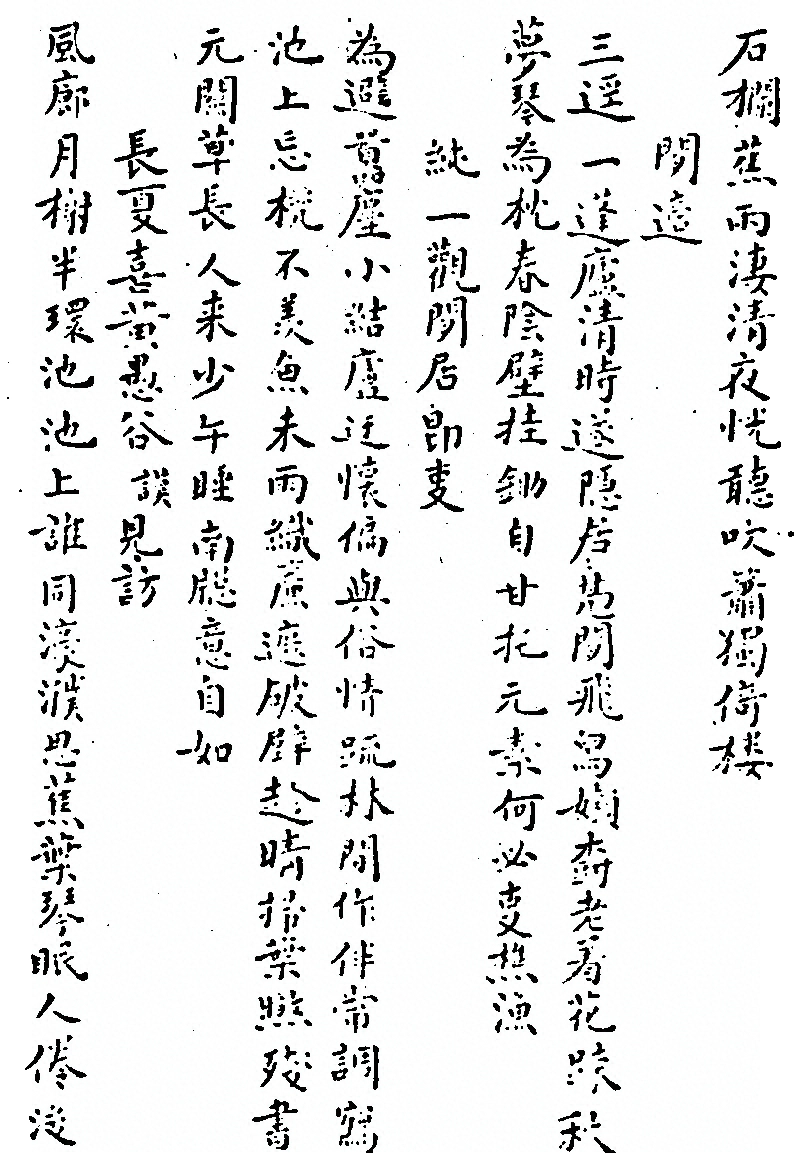 石欄蕉雨淒清夜恍聽吹蕭獨倚樓
閒適
三逕一蓬廬清時遂隱居愁閒飛舄嬾老看花踈秋
夢琴為枕春陰壁挂鋤自甘托元素何必叓樵漁
純一觀閒居即叓
為避萫塵小結廬迂懷偏與俗情疏林間作伴常調鶴
池上忘機不羨魚未雨織蓆遮破壁趁晴掃葉照殘書
元關草長人来少午睡南牕意自如
長夏喜黃愚谷謨見訪
風廊月榭半環池池上誰同濠濮思蕉葉琴眠人倦後